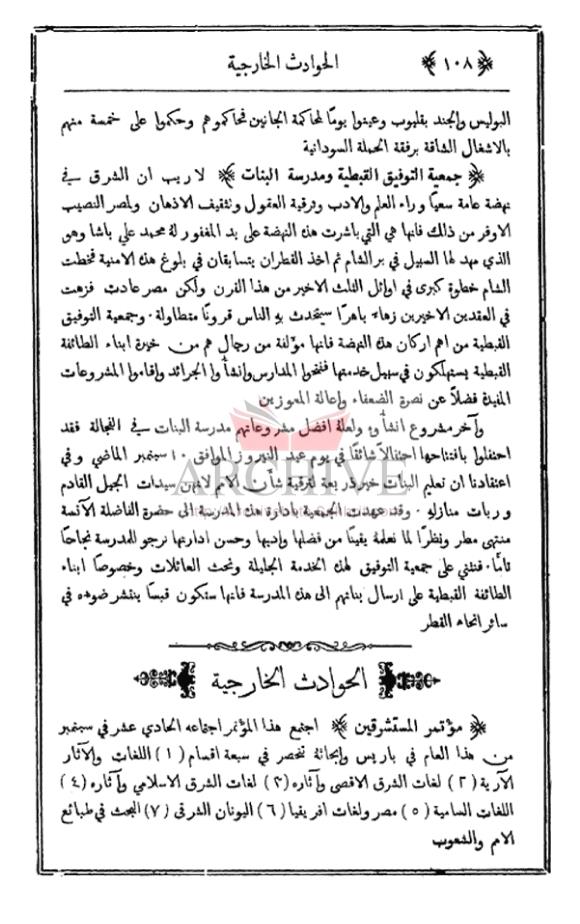 ﴿ ١٠٨ ﴾ الحوادث الخارجية
البوليس والجند بقليوب وعينوا يومًا لمحاكمة الجانين فحاكموهم وحكموا على خمسة منهم
بالاشغال الشاقة برفقة الحملة السودانية
﴿ جمعية التوفيق القبطية ومدرسة البنات ﴾ لا ريب ان الشرق في
نهضة عامة سعيًا وراء العلم والادب وترقية العقول وتثقيف الاذهان ولمصر النصيب
الاوفر من ذلك فانها هي التي باشرت هذه النهضة على يد المغفور له محمد علي باشا وهو
الذي مهد لها السبيل في بر الشام ثم اخذ القطران يتسابقان في بلوغ هذه الامنية فخطت
الشام خطوة كبرى في اوائل الثلث الاخير من هذا القرن ولكن مصر عادت فزهت
في العقدين الاخيرين زهاء باهرًا سيتحدث به الناس قرونًا متطاولة. وجمعية التوفيق
القبطية من اهم اركان هذه النهضة فانها مؤلفة من رجال هم من خيرة ابناء الطائفة
القبطية يستهلكون في سبيل خدمتها ففتحوا المدارس وانشأوا الجرائد واقاموا المشروعات
المفيدة فضلاً عن نصرة الضعفاء واعالة المعوزين
وآخر مشروع انشأوه ولعله افضل مشروعاتهم مدرسة البنات في الفجالة فقد
احتفلوا بافتتاحها احتفالاً شائقًا في يوم عيد النيروز الموافق ١٠ سبتمبر الماضي وفي
اعتقادنا ان تعليم البنات خير ذريعة لترقية شأن الامم لانهن سيدات الجيل القادم
وربات منازله. وقد عهدت الجمعية بادارة هذه المدرسة الى حضرة الفاضلة الآنسة
منتهى مطر ونظرًا لما نعلمه يقينًا من فضلها وادبها وحسن ادارتها نرجو للمدرسة نجاحًا
تامًا. فنثني على جمعية التوفيق لهذه الخدمة الجليلة ونحث العائلات وخصوصًا ابناء
الطائفة القبطية على ارسال بناتهم الى هذه المدرسة فانها ستكون قبسًا ينتشر ضوءه في
سائر انحاء القطر
ARCHIVE
الحوادث الخارجية
﴿ مؤتمر المستشرقين ﴾ اجتمع هذا المؤتمر اجتماعه الحادي عشر في سبتمبر
من هذا العام في باريس وابحاثه تنحصر في سبعة اقسام (١) اللغات والآثار
الآرية (٢) لغات الشرق الاقصى وآثاره (٣) لغات الشرق الاسلامي وآثاره (٤)
اللغات السامية (٥) مصر ولغات افريقيا (٦) اليونان الشرقي (٧) البحث في طبائع
الامم والشعوب